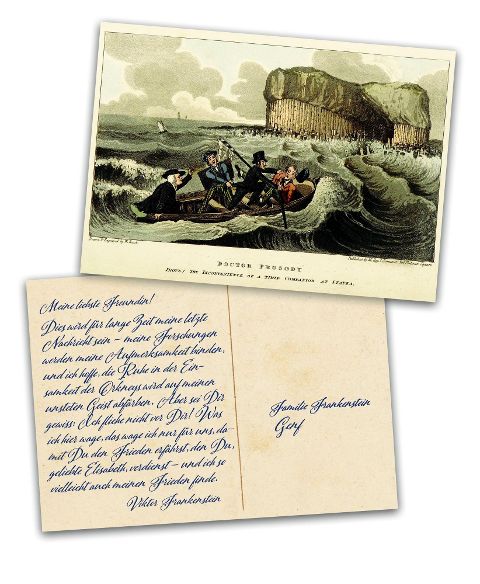 DOCTOR PROSODY
Meine liebste Freundin!
Dies wird für lange Zeit meine letzte
Nachricht sein – meine Forschungen
werden meine Aufmerksamkeit binden,
und ich hoffe, die Ruhe in der Ein-
samkeit der Orkneys wird auf meinen
unsteten Geist abfärben. Aber sei Dir
gewiss: Ich fliehe nicht vor Dir! Was
ich hier wage, das wage ich nur für uns, da-
mit Du den Frieden erfährst, den Du,
geliebte Elisabeth, verdienst – und ich so
vielleicht auch meinen Frieden finde.
Viktor Frankenstein
Familie Frankenstein
Genf